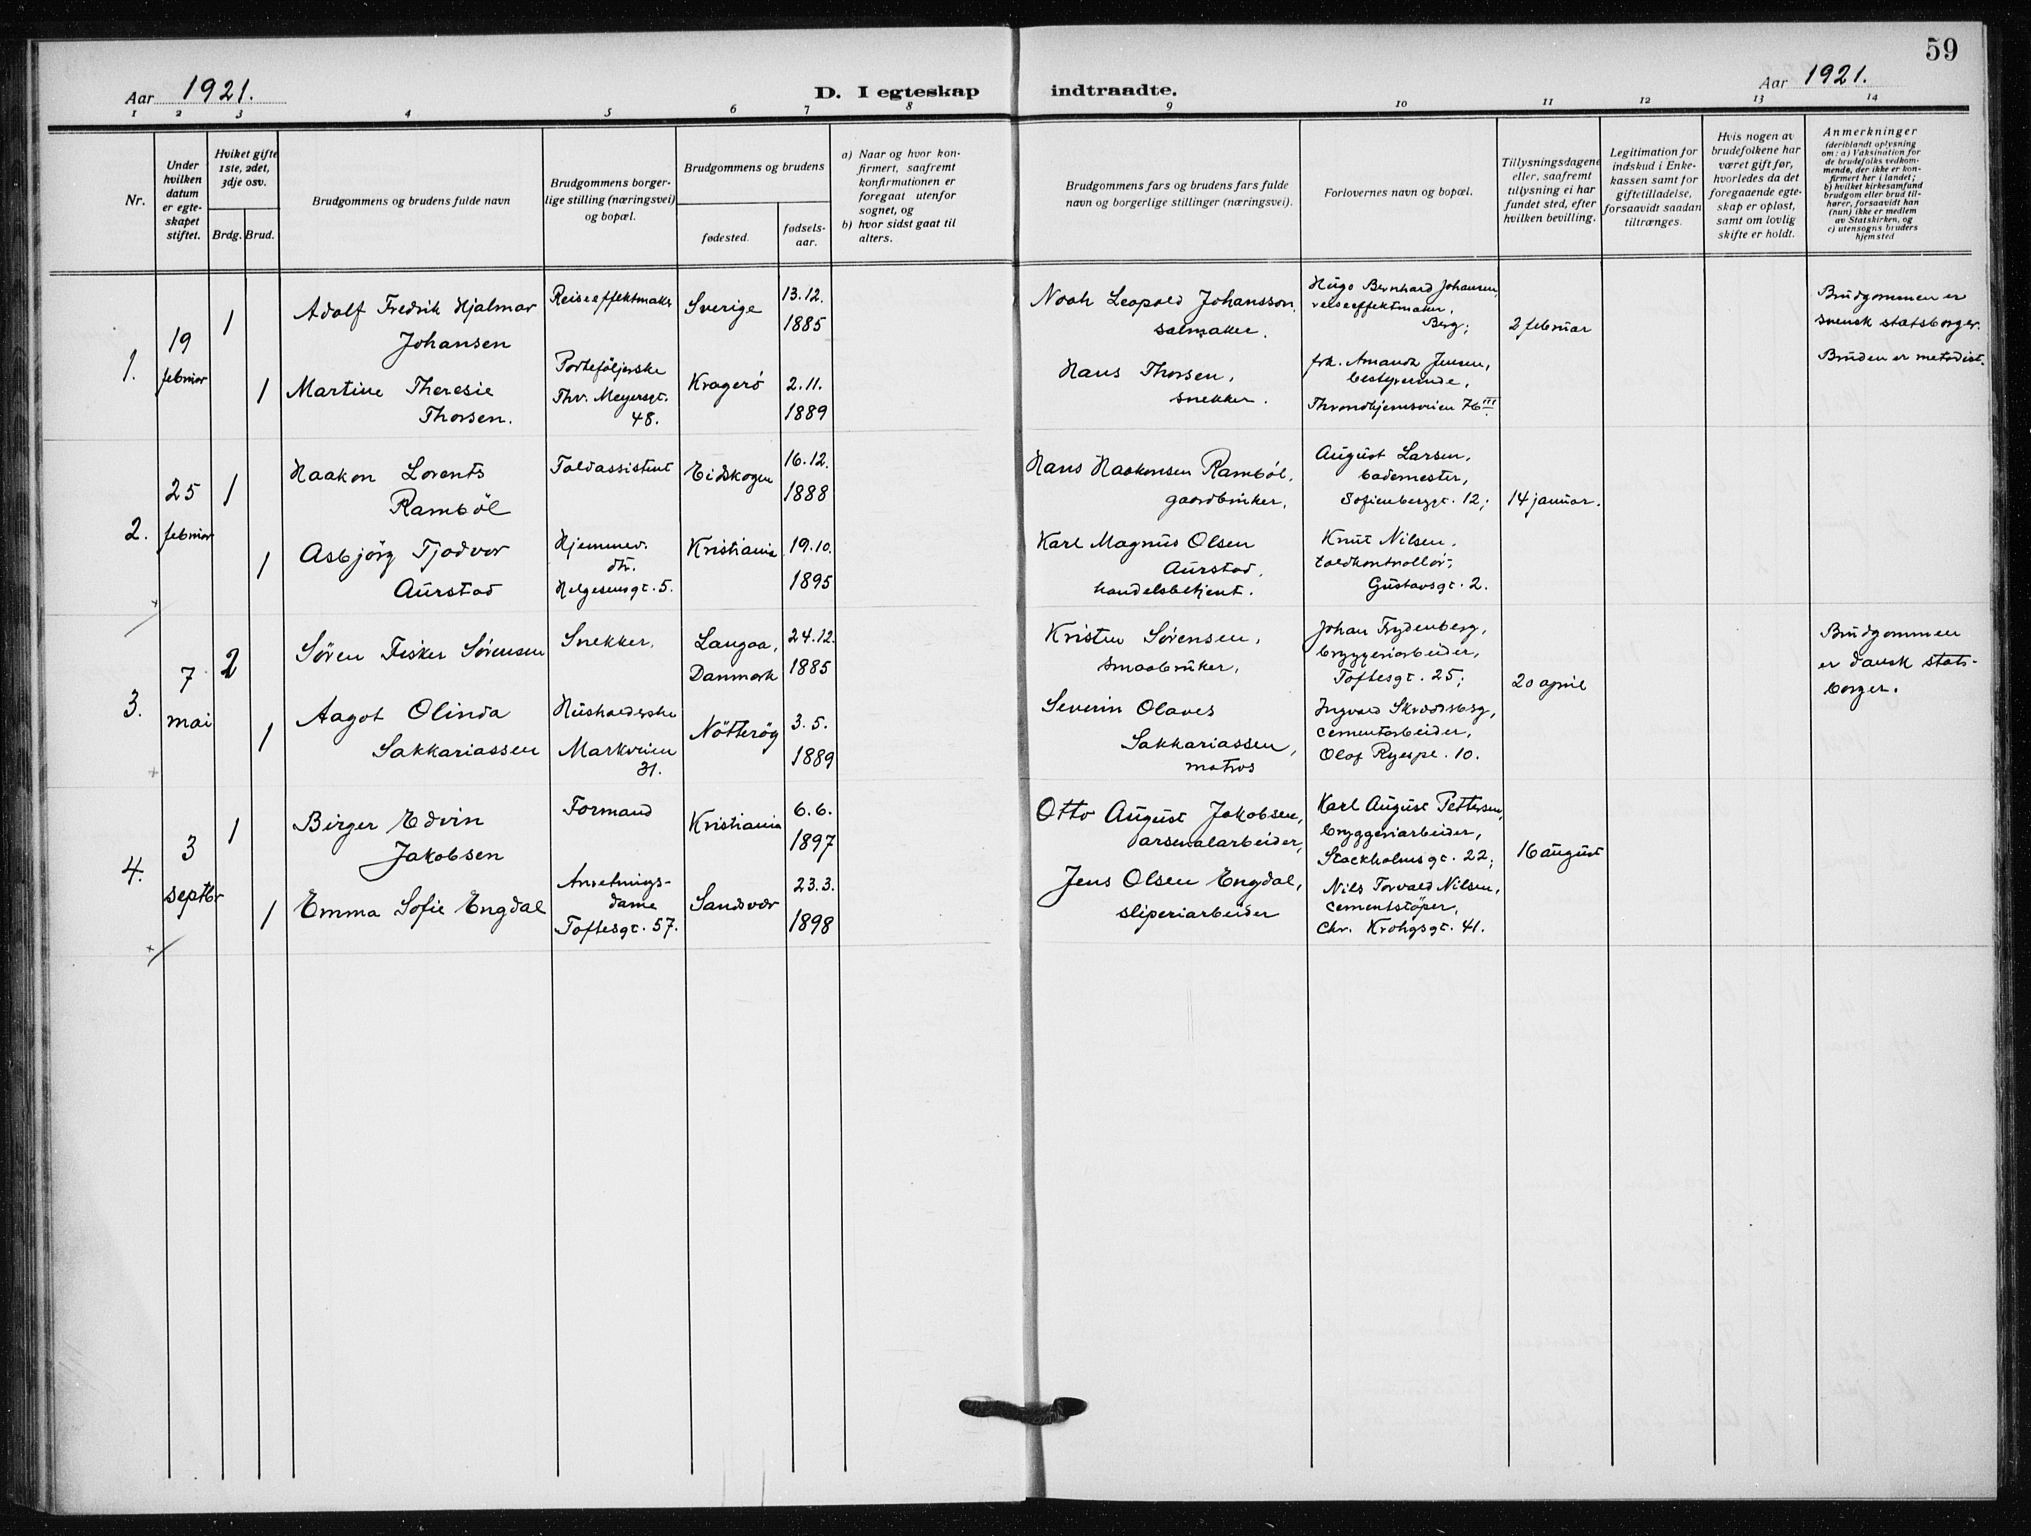 59
Aar 1921.
D. I egteskap indtraadte.
Aar 1921.
1 2 3 4 5 6 7 8 9 10 11 12 13 14
Nr.
Under
hvilken
datum
er egte-
skapet
stiftet.
Hviket gifte
1ste, 2det,
3dje osv.
Brdg. Brud.
Brudgommens og brudens fulde navn
Brudgommens borger-
lige stilling (næringsvei)
og bopæl.
Brudgommens og brudens
fødested.
fødsels-
aar.
a) Naar og hvor kon-
firmert, saafremt
konfirmationen er
foregaat utenfor
sognet, og
b) hvor sidst gaat til
alters.
Brudgommens fars og brudens fars fulde
navn og borgerlige stillinger (næringsvei).
Forlovernes navn og bopæl.
Tillysningsdagene
eller, saafremt
tillysning ei har
fundet sted, efter
hvilken bevilling.
Legitimation for
indskud i Enke-
kassen samt for
giftetilladelse,
forsaavidt saadan
tiltrænges.
Hvis nogen av
brudefolkene har
været gift før,
hvorledes da det
foregaaende egte-
skap er opløst,
samt om lovlig
skifte er holdt.
Anmerkninger
(deriblandt oplysning
om: a) Vaksination for
de brudefolks vedkom-
mende, der ikke er kon-
firmert her i landet;
b) hvilket kirkesamfund
brudgom eller brud til-
hører, forsaavidt han
(hun) ikke er medlem
av Statskirken, og
c) utensogns bruders
hjemsted
1.
19
februar
1
Adolf Fredrik Hjalmar
Johansen
Reiseeffektmaker
Sverige
13.12.
1885
Noah Leopold Johansson,
salmaker.
Hugo Bernhard Johansen,
reiseeffektmaker,
Berg;
2 februar
Brudgommen er
svensk statsborger.
Bruden er metodist.
1
Martine Theresie
Thorsen.
Porteføljerske
Thv. Meyersgt.
48.
Kragerö
2.11.
1889
Hans Thorsen,
snekker.
frk. Amanda Jensen,
bestyrerinde,
Throndhjemsveien 76 III.
2.
25
februar
1
Haakon Lorents
Ramböl
Toldassistent
Eidskogen
16.12.
1888
Hans Haakonsen Ramböl,
gaardbruker.
August Larsen,
bademester,
Sofienberggt. 12;
14 januar.
1
Asbjörg Tjodvor
Aurstad
Hjemmev.
dtr.
Helgesensgt. 5.
Kristiania
19.10.
1895
Karl Magnus Olsen
Aurstad,
handelsbetjent.
Knut Nilsen,
toldkontrollör,
Gustavsgt. 2.
3.
7
mai
2
Søren Fisker Sørensen
Snekker,
Langaa,
Danmark
24.12.
1885
Kristen Sørensen,
smaabruker,
Johan Frydenberg,
bryggeriarbeider,
Toftesgt. 25;
20 april
Brudgommen
er dansk stats-
borger.
1
Aagot Olinda
Sakkariassen
Husholderske
Markveien
31.
Nötteröy
3.5.
1889
Severin Olaves
Sakkariassen,
matros
Ingvald Skradderberg,
cementarbeider,
Olaf Ryespl. 10.
4.
3
septbr
1
Birger Edvin
Jakobsen
Formand
Kristiania
6.6.
1897
Otto August Jakobsen,
arsenalarbeider,
Karl August Pettersen,
bryggeriarbeider,
Stockholmsgt. 22;
16 august
1
Emma Sofie Engdal
Anretnings-
dame
Toftesgt. 57.
Sandsvær
23.3.
1898
Jens Olsen Engdal,
sliperiarbeider
Nils Torvald Nilsen,
cementstöper,
Chr. Krohgsgt. 41.